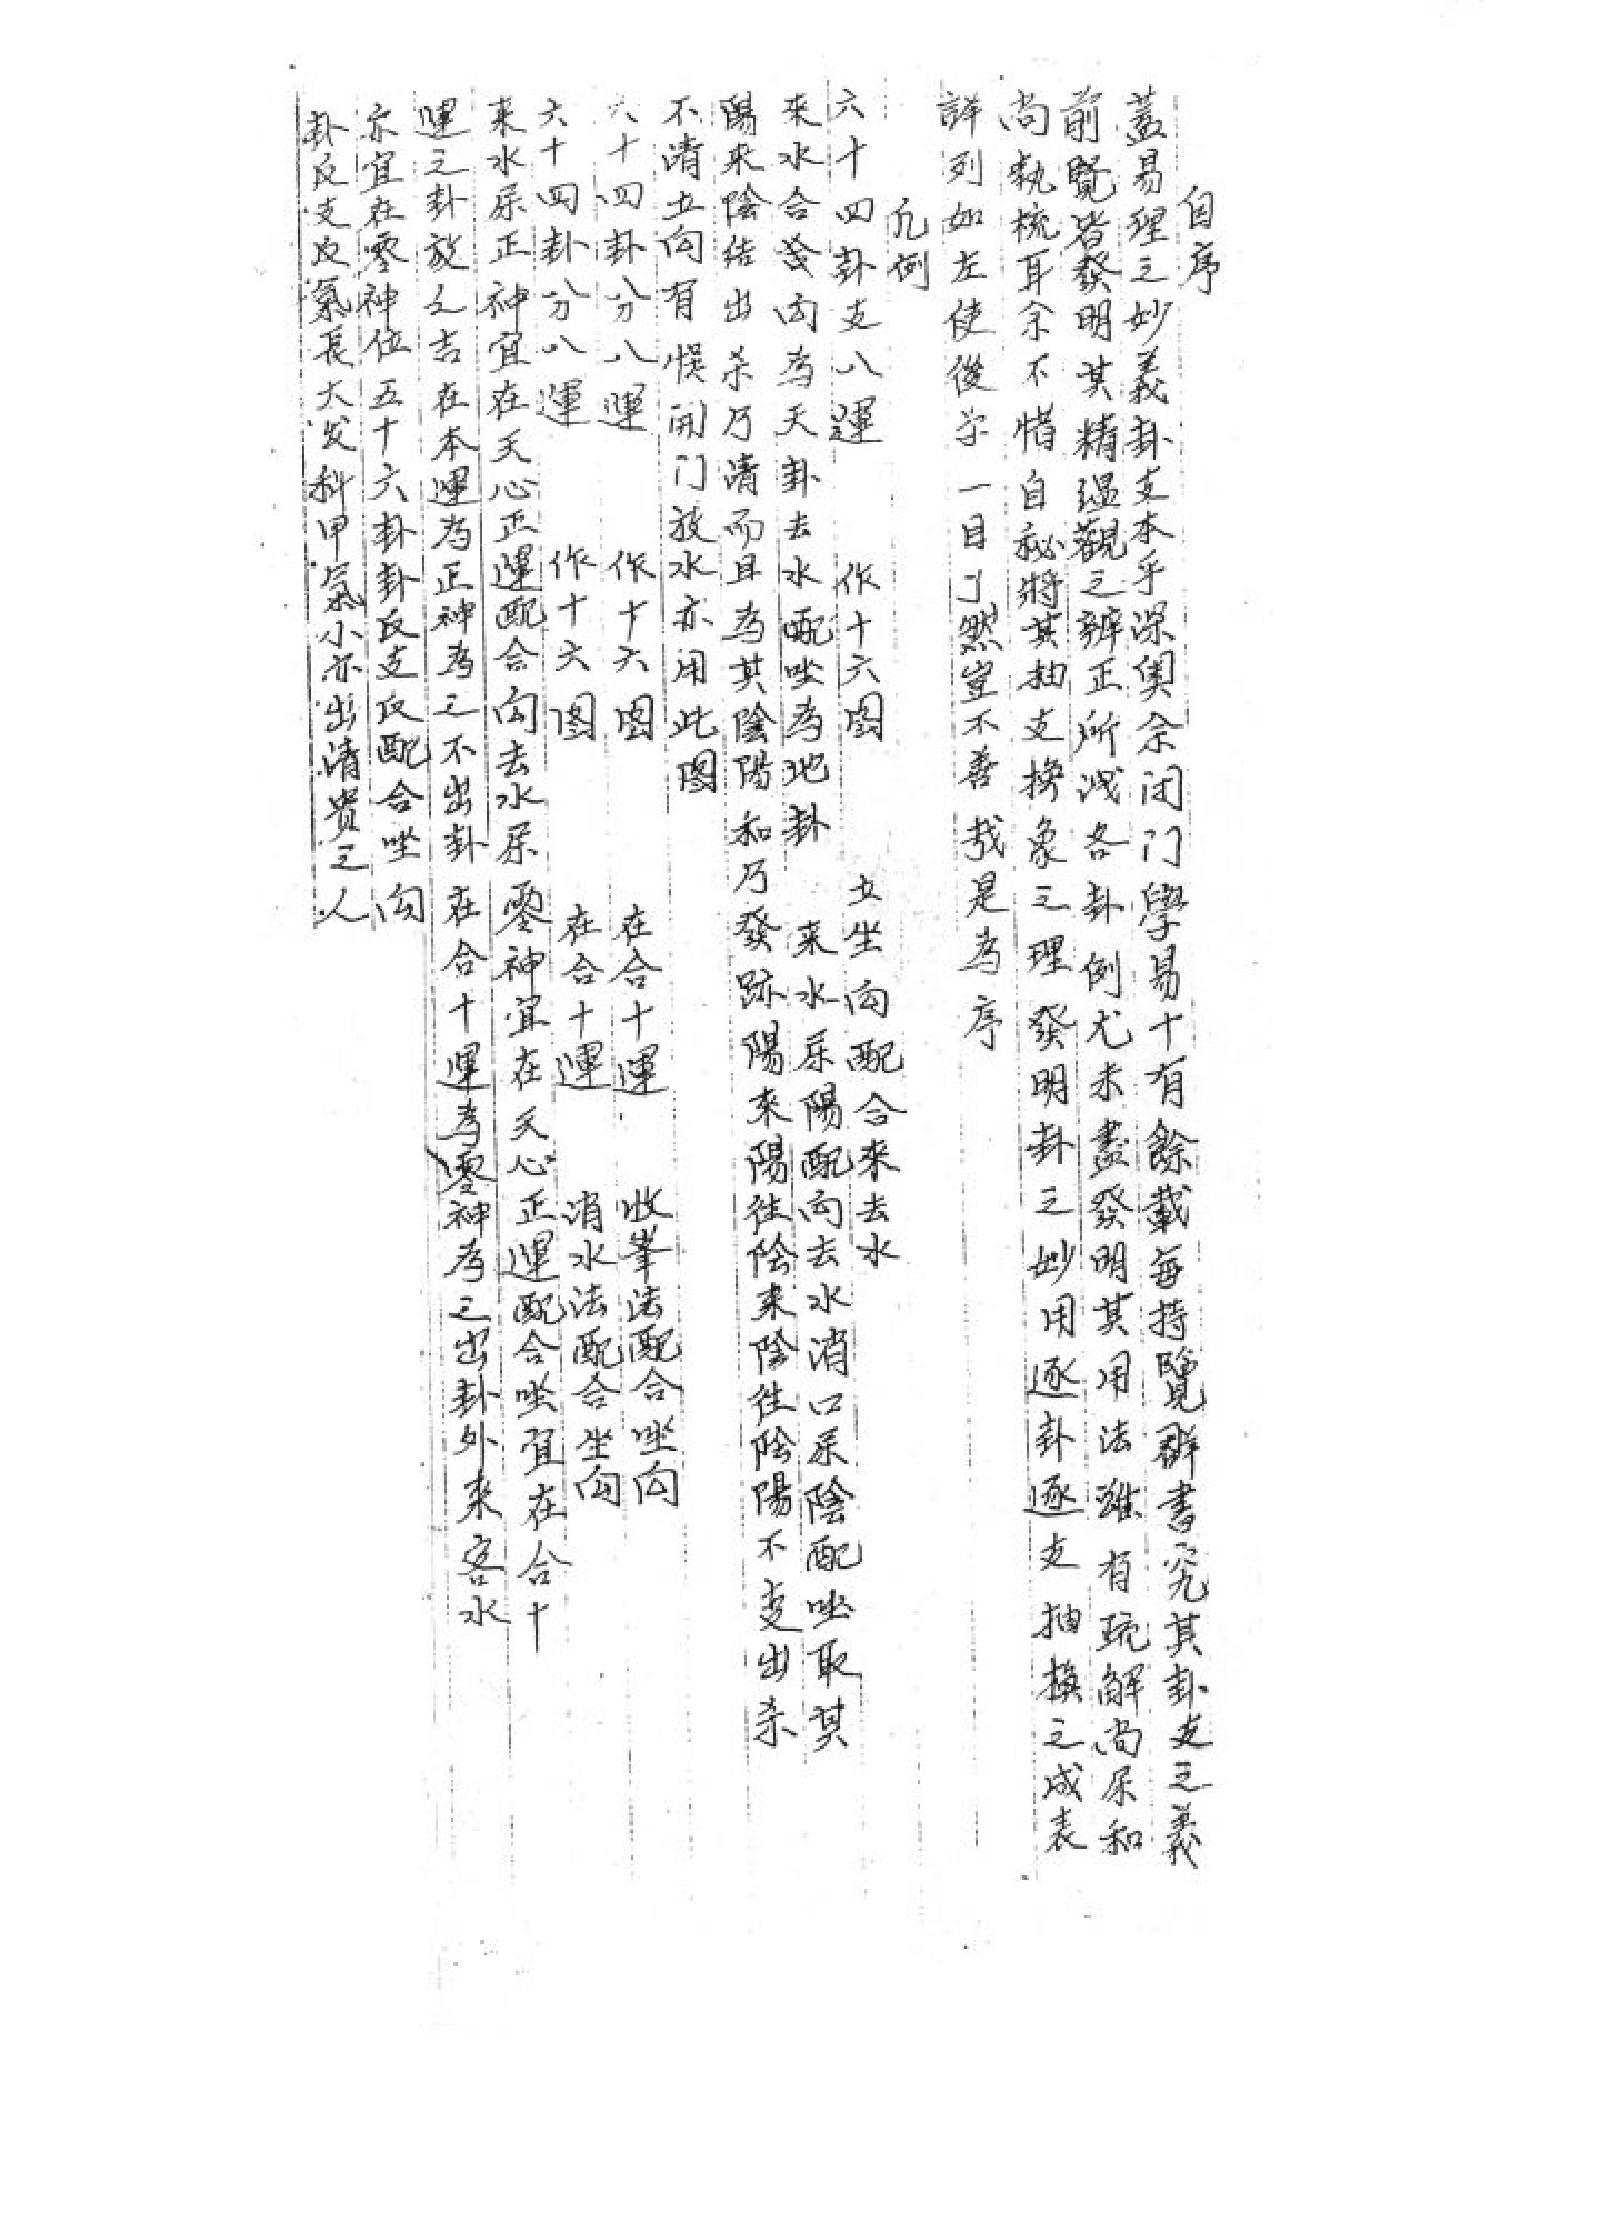 自序
蓋易理之妙義卦爻本乎深奧余闭门學易十有餘載每持覽群書究其卦爻之義
前賢皆發明其精蘊觀之辨正所浅各卦例尤未盡發明其用法雖有疏解尚属和
尚執梳耳余不惜自秘將其抽爻換象之理發明卦之妙用逐卦逐爻抽換之成表
詳列如左使後学一目了然豈不善哉是為序
凡例
六十四卦爻八運 作十六图 立坐向配合來去水
來水合向為天卦去水配坐為地卦 來水属陽配向去水消口属陰配坐取其
陽來陰结出杀乃清而且為其陰陽和乃發跡陽來陽往陰來陰往陰陽不变出杀
不清立向有悞開门放水亦用此图
六十四卦分八運 作十六图 在合十運 收峯法配合坐向
六十四卦分八運 作十六图 在合十運 消水法配合坐向
來水属正神宜在天心正運配合向去水属零神宜在天心正運配合坐宜在合十
運之卦放之吉在本運為正神為之不出卦在合十運為零神為之出卦外來客水
亦宜在零神位五十六卦卦反爻反配合坐向
卦反爻反氣長大发科甲氣小亦出清贵之人